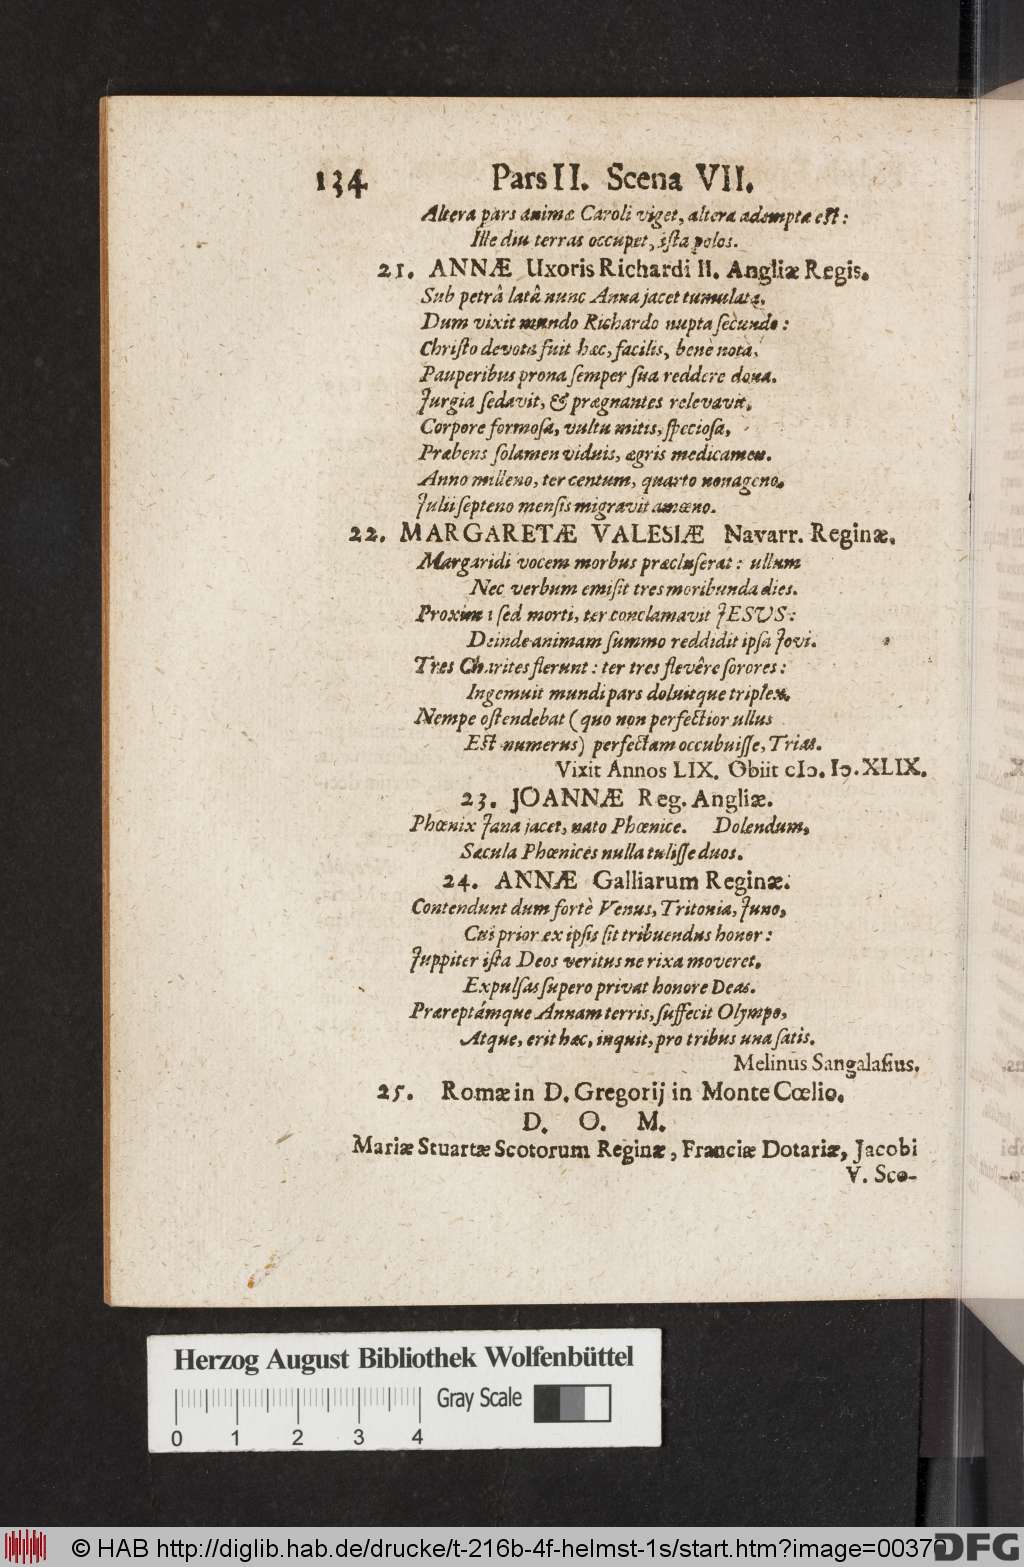 134 Pars II. Scena VII.
Altera pars animæ Caroli viget, altera adempta est:
Ille diu terras occupet, ista polos.
21. ANNÆ Uxoris Richardi II. Angliæ Regis.
Sub petrâ latâ nunc Anna jacet tumulata,
Dum vixit mundo Richardo nupta secundo:
Christo devota fuit hæc, facilis, benè nota,
Pauperibus prona semper sua reddere dona.
Jurgia sedavit, & prægnantes relevavit,
Corpore formosa, vultu mitis, speciosa,
Præbens solamen viduis, ægris medicamen.
Anno milleno, ter centum, quarto nonageno,
Julii septeno mensis migravit amæno.
22. MARGARETÆ VALESIÆ Navarr. Reginæ.
Margaridi vocem morbus præcluserat: ullum
Nec verbum emisit tres moribunda dies.
Proxima sed morti, ter conclamavit JESUS:
Deinde animam summo reddidit ipsa Jovi.
Tres Charites flerunt: ter tres flevêre sorores:
Ingemuit mundi pars doluitque triplex.
Nempe ostendebat (quo non perfectior ullus
Est numerus) perfectam occubuisse, Trias.
Vixit Annos LIX. Obiit cIↄ. Iↄ. XLIX.
23. JOANNÆ Reg. Angliæ.
Phœnix Jana jacet, nato Phœnice. Dolendum,
Sæcula Phœnices nulla tulisse duos.
24. ANNÆ Galliarum Reginæ.
Contendunt dum fortè Venus, Tritonia, Juno,
Cui prior ex ipsis sit tribuendus honor:
Juppiter ista Deos veritus ne rixa moveret,
Expulsas supero privat honore Deas.
Præreptámque Annam terris, suffecit Olympo,
Atque, erit hæc, inquit, pro tribus una satis.
Melinus Sangalasius.
25. Romæ in D. Gregorij in Monte Cœlio.
D. O. M.
Mariæ Stuartæ Scotorum Reginæ, Franciæ Dotariæ, Jacobi
V. Sco-
Herzog August Bibliothek Wolfenbüttel
Gray Scale
0 1 2 3 4
© HAB http://diglib.hab.de/drucke/t-216b-4f-helmst-1s/start.htm?image=00370
DFG